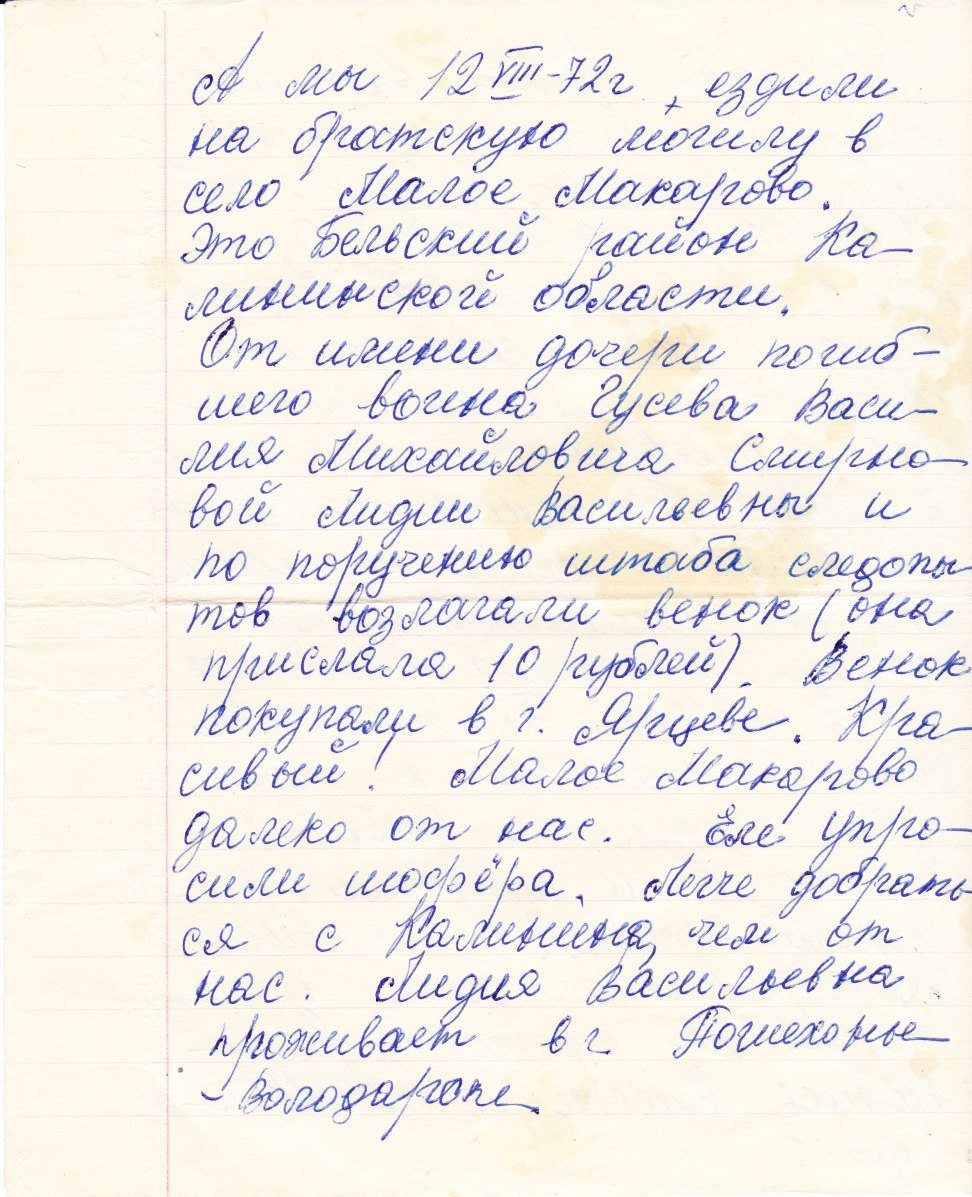 А мы 12 VIII-72г, ездили
на братскую могилу в
село Малое Макарово.
Это Бельский район Ка-
лининской области.
От имени дочери погиб-
шего воина Гусева Васи-
лия Михайловича Смирно-
вой Лидии Васильевны и
по поручению штаба следопы-
тов возлагали венок (она
прислала 10 рублей). Венок
покупали в г. Ярцеве. Кра-
сивый! Малое Макарово
далеко от нас. Еле упро-
сили шофёра. Легче добрать-
ся с Калинина, чем от
нас. Лидия Васильевна
проживает в г Пошехонье
- Володарске.